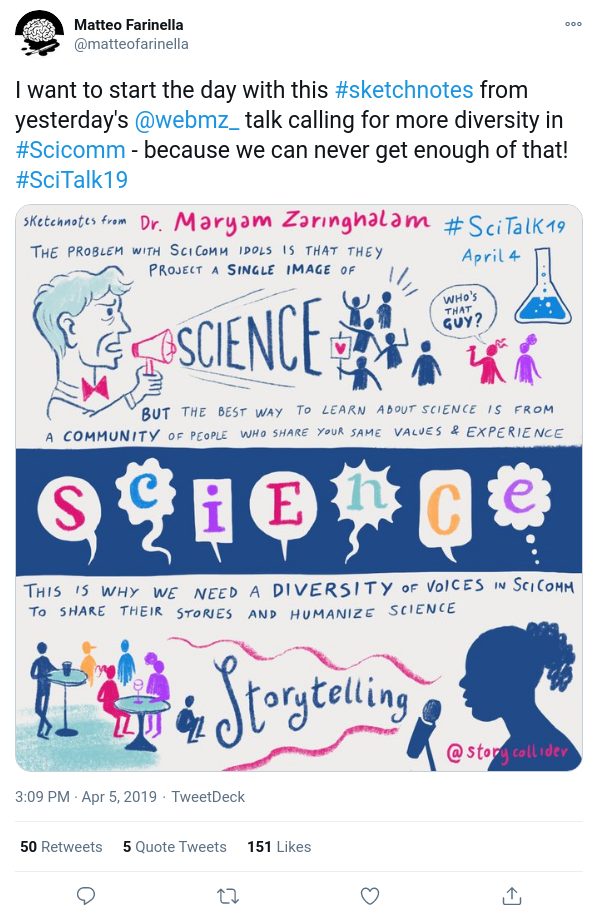 Matteo Farinella
@matteofarinella
I want to start the day with this #sketchnotes from
yesterday's @webmz_ talk calling for more diversity in
#Scicomm - because we can never get enough of that!
#SciTalk19
sketchnotes from Dr. Maryam Zaringhalam #SciTalk19
April 4
THE PROBLEM WITH SCICOMM IDOLS IS THAT THEY
PROJECT A SINGLE IMAGE OF
SCIENCE
WHO'S
THAT
GUY?
BUT THE BEST WAY TO LEARN ABOUT SCIENCE IS FROM
A COMMUNITY OF PEOPLE WHO SHARE YOUR SAME VALUES & EXPERIENCE
S c i E n C e
THIS IS WHY WE NEED A DIVERSITY OF VOICES IN SCICOMM
TO SHARE THEIR STORIES AND HUMANIZE SCIENCE
Storytelling
@story collider
3:09 PM · Apr 5, 2019 · TweetDeck
50 Retweets 5 Quote Tweets 151 Likes